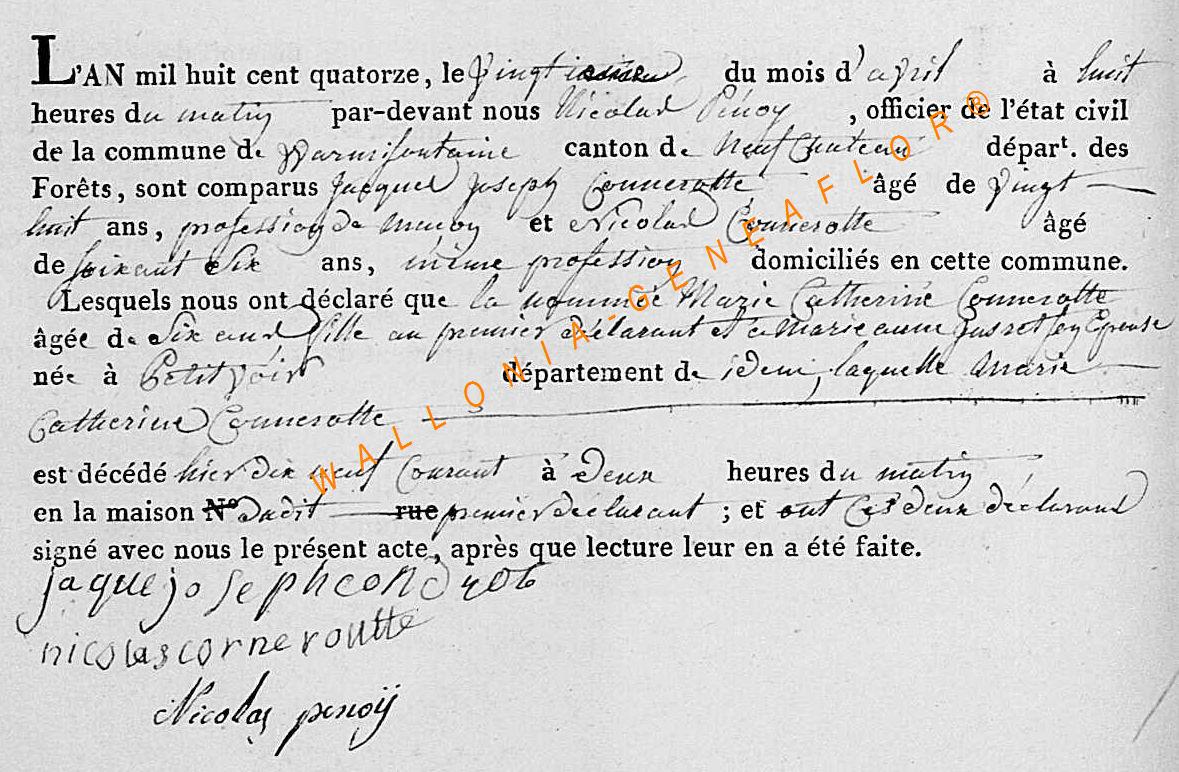 L'AN mil huit cent quatorze, le vingt du mois d'avril à huit
heures du matin par-devant nous Nicolas Pinoy , officier de l'état civil
de la commune de Warmifontaine canton de Neufchateau départ. des
Forêts, sont comparus Jacques Joseph Connerotte âgé de vingt
huit ans, profession de macon et Nicolas Connerotte âgé
de soixant Six ans, même profession domiciliés en cette commune.
Lesquels nous ont déclaré que la nommée Marie Catherine Connerotte
âgée de Six ans fille au premier déclarant et à Marie anne son Epouse
née à Petitvoir département de idem, laquelle Marie
Catherine Connerotte
est décédé hier dix neuf Courant à Deux heures du matin
en la maison N° Dudit rue premier déclarant ; et ont Ces deux déclarans
signé avec nous le présent acte, après que lecture leur en a été faite.
jaque joseph
nicolas corneroutte
Nicolas penoÿ
WALLONIA-GENEAFLOR®